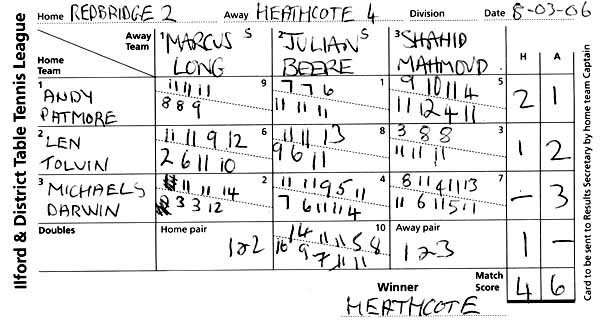 Ilford & District Table Tennis League
Home REDBRIDGE 2 Away HEATHCOTE 4 Division Date 8-03-06
Away Team 1 MARCUS S LONG 2 JULIAN S BEERE 3 SHAHID MAHMOUD H A
Home Team
1 ANDY PATMORE 9 11 11 11 1 7 7 6 5 9 10 11 4 2 1
8 8 9 11 11 11 11 12 4 11
2 LEN TOLVIN 6 11 11 9 12 8 11 11 13 3 3 8 8 1 2
2 6 11 10 9 6 11 11 11 11
3 MICHAEL S DARWIN 2 11 11 14 4 11 11 9 5 11 7 8 11 4 11 13 - 3
3 3 12 7 6 11 11 4 11 6 11 5 11
Doubles Home pair 1+2 10 14 11 11 5 8 Away pair 1+3 1 -
16 9 7 11 11
Winner HEATHCOTE Match Score 4 6
Card to be sent to Results Secretary by home team Captain